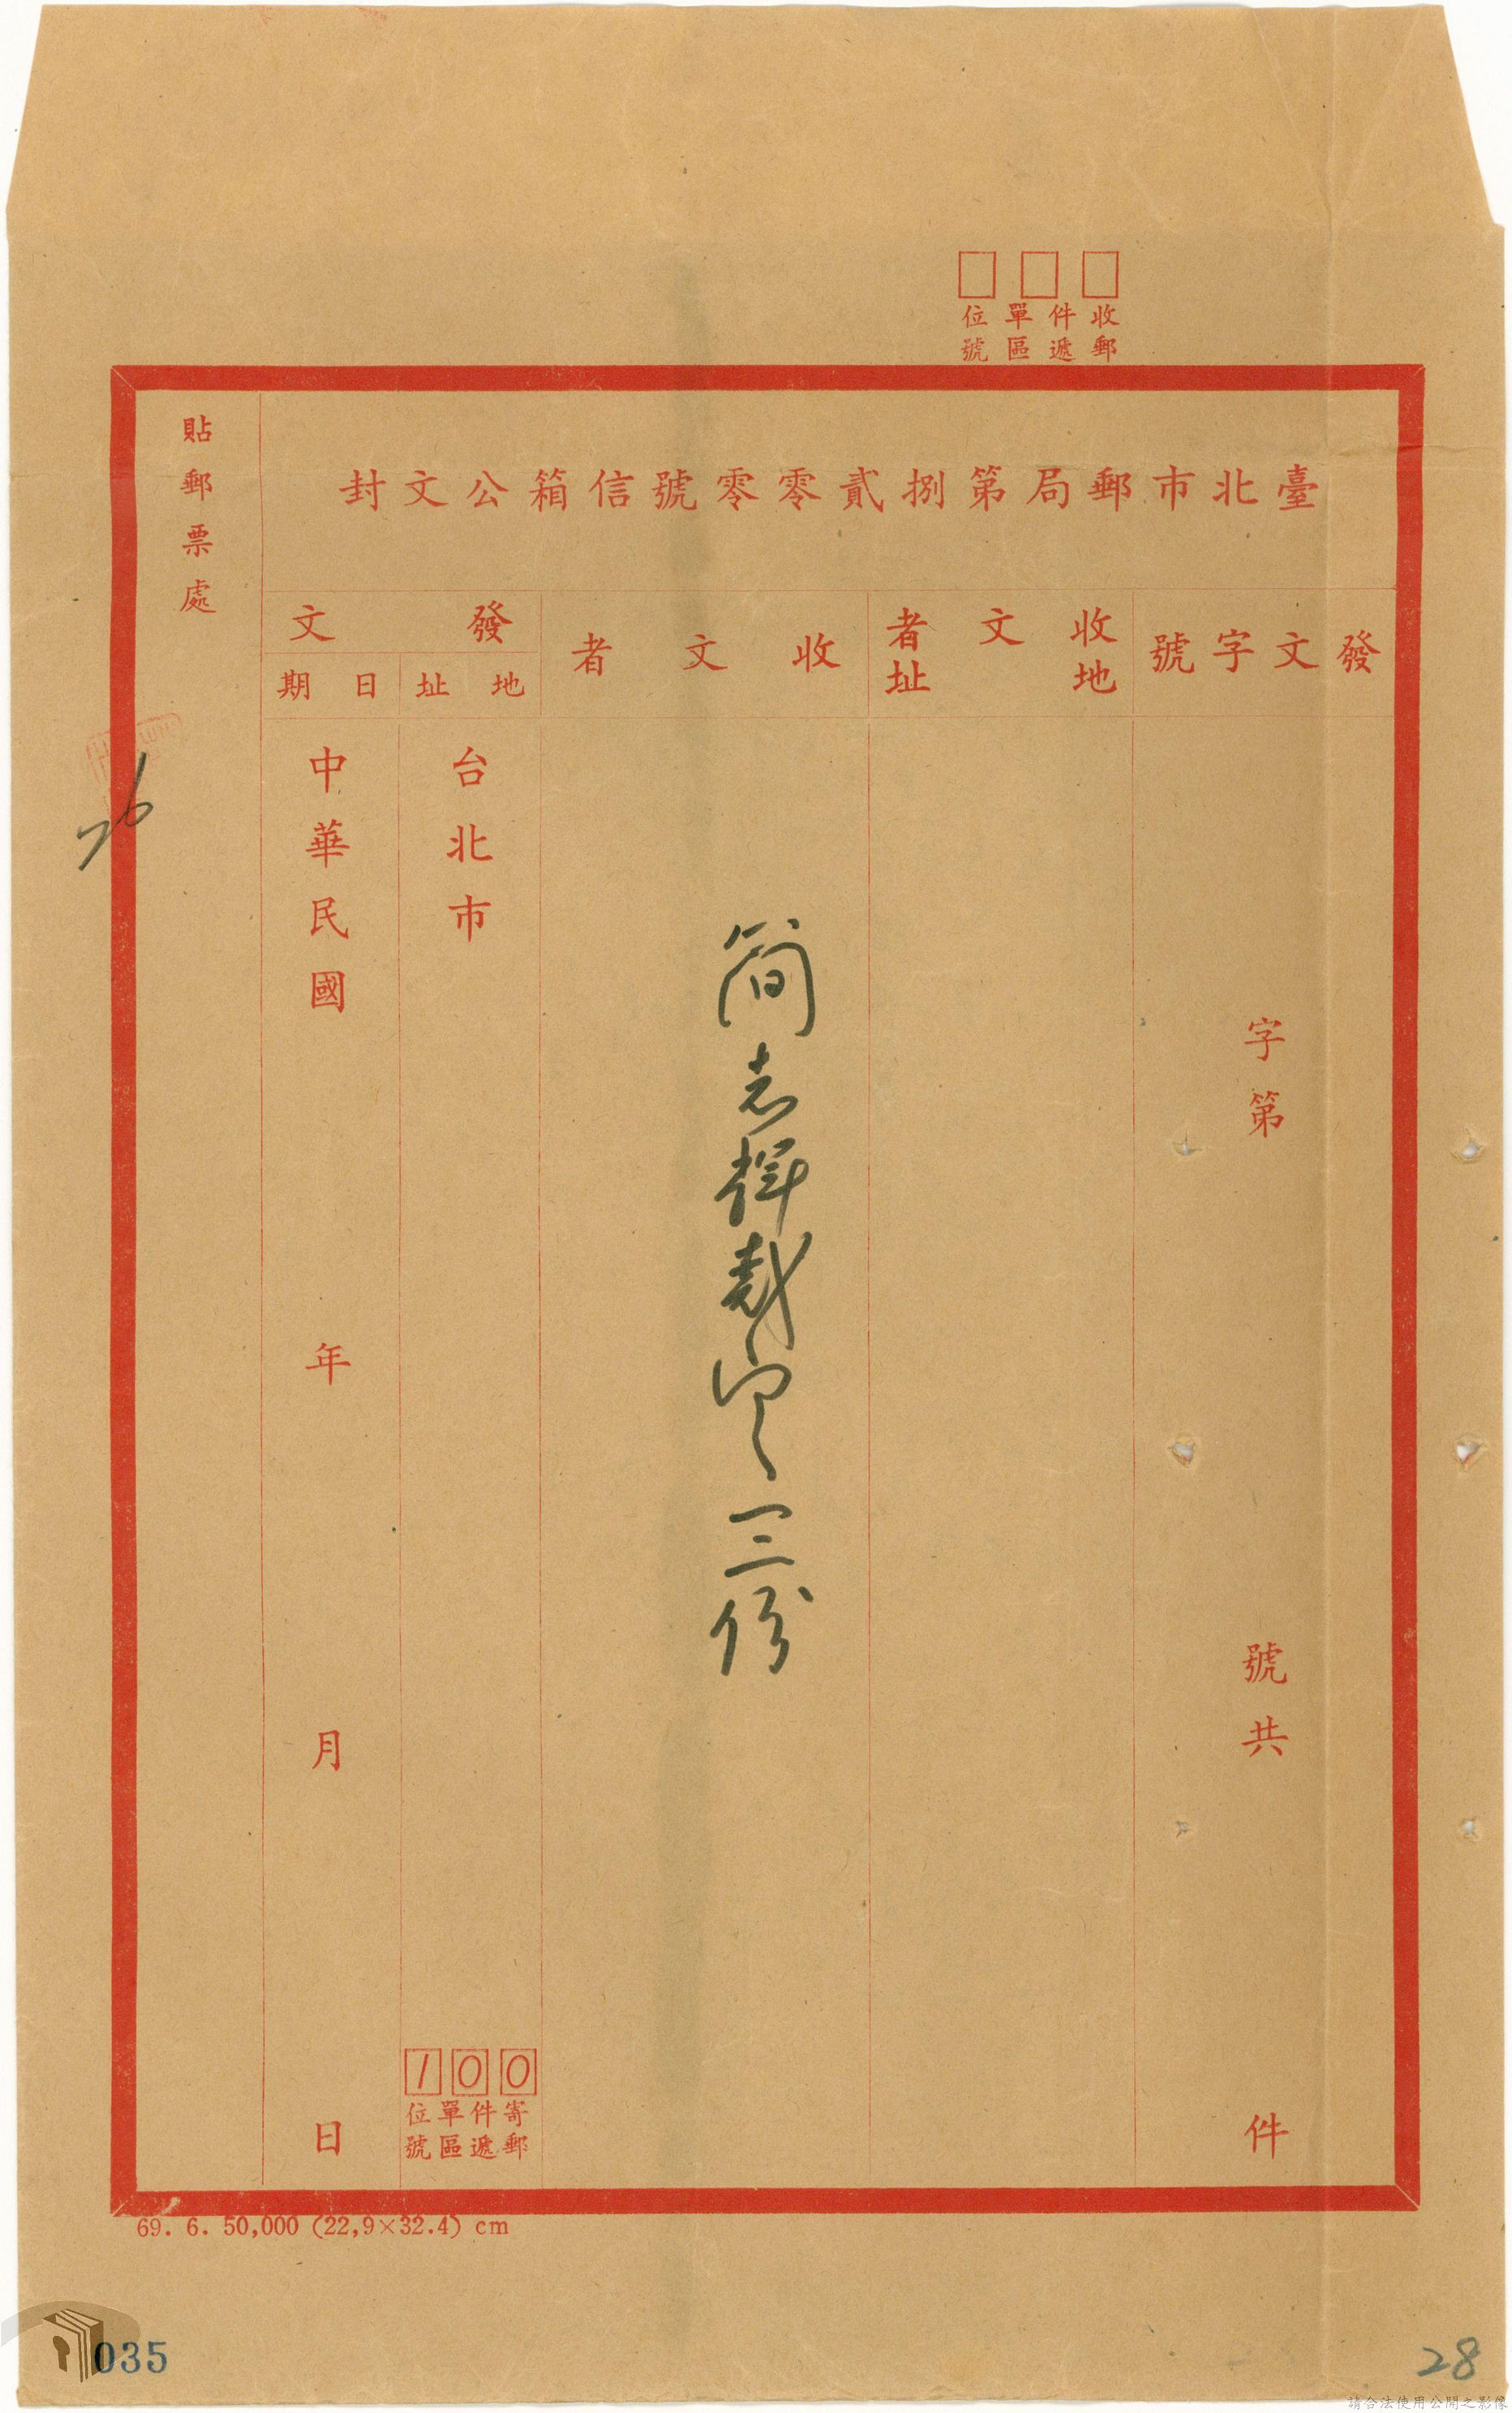 收件單位
郵遞區號
臺北市郵局第捌貳零零號信箱公文封
貼郵票處
發文字號
收文者地址
收文者
發文
地址
日期
字第 號共 件
簡志輝裁定三份
台北市
100
寄件單位
郵遞區號
中華民國 年 月 日
69. 6. 50,000 (22,9×32.4) cm
035
28
請合法使用公開之影像